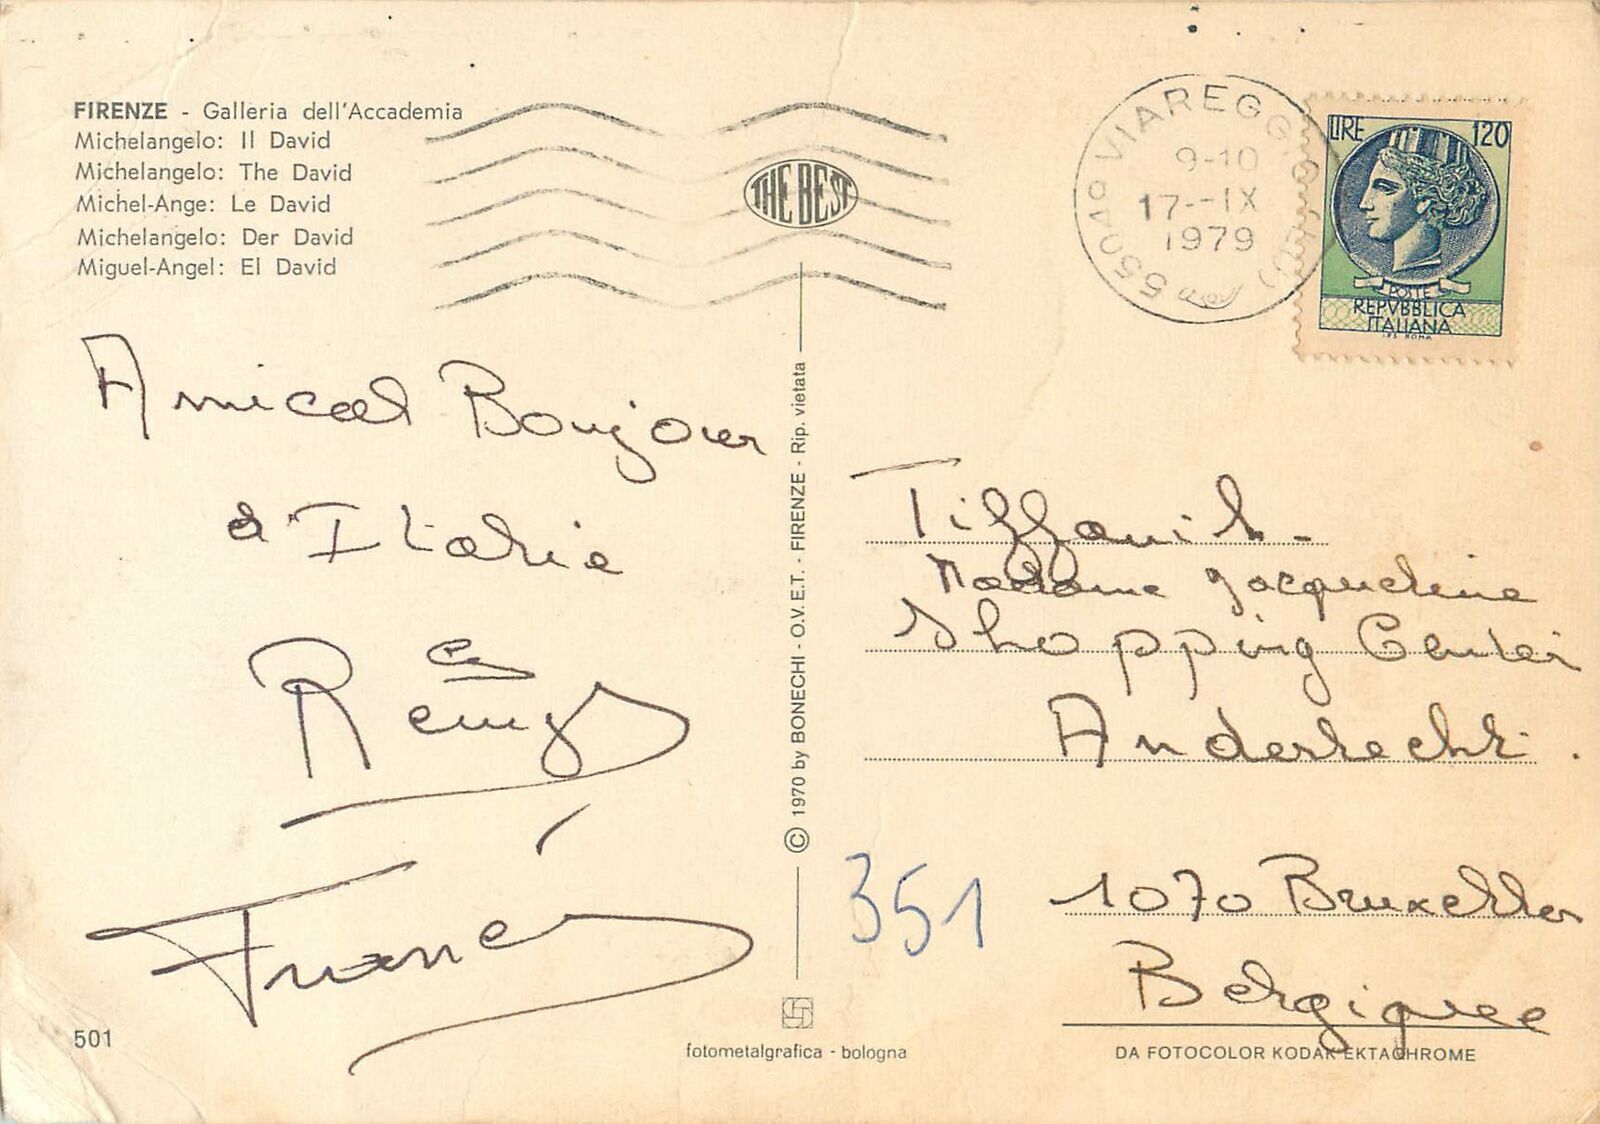 FIRENZE - Galleria dell'Accademia
Michelangelo: Il David
Michelangelo: The David
Michel-Ange: Le David
Michelangelo: Der David
Miguel-Angel: El David
THE BEST
55049 VIAREGGIO (LU)
9-10
17--IX
1979
LIRE 120
POSTE
REPVBBLICA
ITALIANA
I.P.S. ROMA
Amical Bonjour
d'Italie
Rémy
et
Francé
© 1970 by BONECHI - O.V.E.T. - FIRENZE - Rip. vietata
Madame Jacqueline
Shopping Center
Anderlecht.
1070 Bruxelles
Belgique
351
501
fotometalgrafica - bologna
DA FOTOCOLOR KODAK EKTACHROME